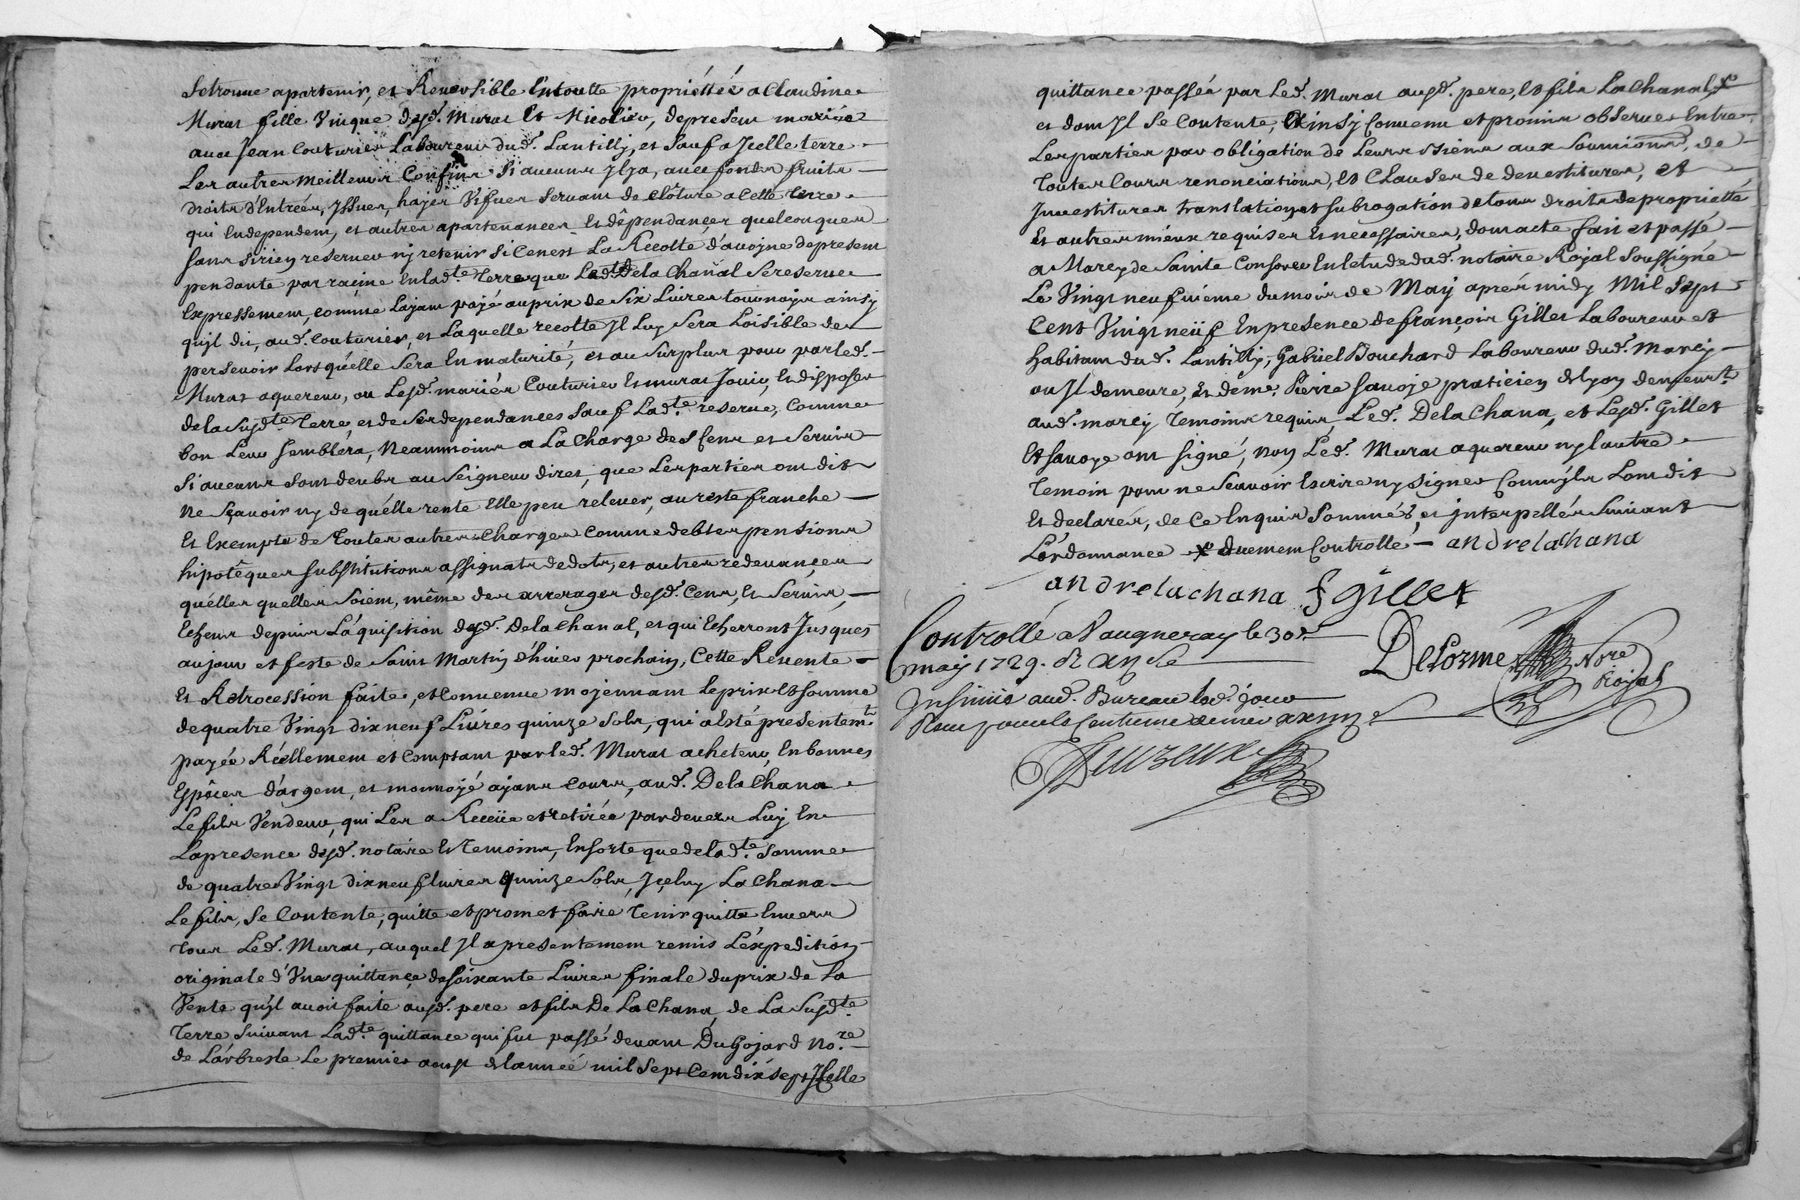 Setrouue apartenir, et Reuersible Entoutte propriéttéé a Claudine
Murat fille Vnique dusd. Murat Et Nicolier, depresent mariée
auec Jean Couturier Laboureur dud. Lantilly, et Sauf a Jcelle terre
Les autres meilleurs Confins Si aucuns Jl ya, auec fonds fruits
droits d'Entrées, Jssues, hayes Vifues Seruant de Clôture a Cette terre
qui Endependent, et autres apartenances Et dêpendançes quelconques
Sans Sirien reseruer ny retenir Si Cenest La Recolte d'auoyne depresent
pendante par raçine Enladte. Terre que Ledt. Dela Chanal Sereserue
Expressement, comme Layant payé auprix de Six Liures tournoyis ainsy
qujl dit, aud. Couturier, et Laquelle recolte Jl Luy Sera Loisible de
perseuoir Lors quélle Sera En maturité, et au Surplus pour par led.
Murat aquereur, ou Lesd. mariés Couturier Et murat Jouir, Et disposer
de la Susdte. Terre, et de Ses dependances Sauf Ladte. reserue, Comme
bon Leur Semblera, Neaummoins a La Charge des Cens et Seruis
Si aucuns Sont deubs au Seigneur direct, que Les parties ont dit
Ne Sçauoir ny de quélle rente Elle peu releuer, au reste franche
Et Exempte de Toutes autres Charges Comme debtes pensions
hipotêques Substitutions assignats de dots, et autres redeuances
quélles quelles Soient, même des arrerages desd. Cens, Et Seruis,
Echeus depuis Láquisition dusd. Dela Chanal, et qui Echerront Jusques
au jour et feste de Saint Martin d'hiuer prochain, Cette Reuente
Et Retrocession faite, et Conuenue moyennant Le prix Et Somme
de quatre Vingt dix neuf Liures quinze Sols, qui a Esté presentemt.
payée Réellement et Comptant par led. Murat acheteur, En bonnes
Espêces d'argent, et monnoyé ayant Cours, aud. Dela Chana
Le fils Vendeur, qui Les a Receüe et retirée pardeuers Luy En
La presence dusd. notaire Et Temoins, En sorte que de ladte. Somme
de quatre Vingt dix neuf liures quinze Sols, Jçeluy La Chana
Le fils, Se Contente, quitte et promet faire Tenir quitte Enuers
Tous Led. Murat, auquel Jl a presentement remis L'éxpedition
originale d'Vne quittançe de Soixante Liures finale du prix de la
Vente qu'jl auoit faite ausd. pere et fils De La Chana, de La Susdte.
Terre Suiuant Ladte. quittance qui fut passé deuant DuGojard No.re
de Lárbresle Le premier aoust de lannéé mil Sept Cent dix sept Jcelle
quittance passée par Led. Murat ausd. pere, Et fils La Chanal,
et dont Jl Se Contente, Ainsy Conuenu et promis obseruer Entre
Les parties par obligation de Leurs Biens aux Soumissions, de
Toutes Cours renonciations, Et Clauses de deuestitures, et
Jnuestitures translation et subrogation de tous droits de proprietté
Et autres mieux requises Et necessaires, dont acte fait et passé
a Marcy de Sainte Consorce En letude dud. notaire Royal Soussigné
Le Vingt neufuieme du mois de May aprés midy Mil Sept
Cent Vingt neüf En presence de françois Gillet Laboureur et
habitant dud. Lantilly, Gabriel Bouchard Laboureur dud. Marcy
ou Jl demeure, Et de me. Pierre Sauoye praticien de Lyon demeurt.
aud. marcy Temoins requis Led. Dela Chana, et Lesd. Gillet
Et Sauoye ont signé, non Led. Murat aquereur ny lautre
Temoin pour ne Scauoir Escrire ny Signer Comme jls Lont dit
Et declarés, de Ce Enquis Sommés, et jnterpellés Suiuant
Lórdonnance x duement Controllé — andre lachana
andre lachana f Gillet
Controllé a Vaugneray le 30e.
may 1729.
Jnsinué aud. Bureau led. jour
Delorme Nore
Royal